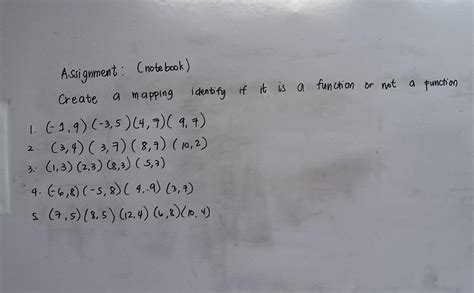 Assignment: (notebook)
Create a mapping identify if it is a function or not a function
1. (-1,9) (-3,5) (4,7) (9,7)
2. (3,4) (3,7) (8,7) (10,2)
3. (1,3) (2,3) (8,3) (5,3)
4. (-6,8) (-5,8) (4,-9) (3,7)
5. (7,5) (8,5) (12,4) (6,8) (10,4)